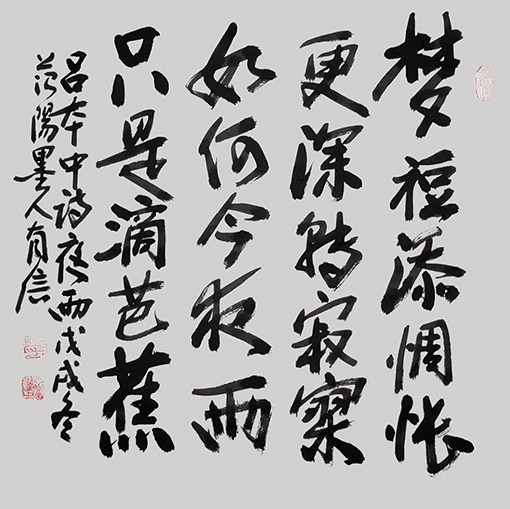 梦短添惆怅
更深转寂寥
如何今夜雨
只是滴芭蕉
吕本中诗夜雨戊戌冬
范阳墨人有信